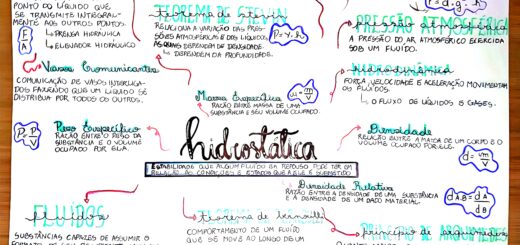 PONTO DO LÍQUIDO QUE
SE TRANSMITE INTEGRAL-
MENTE AOS OUTROS PONTOS.
F
A
PRENSA HIDRÁULICA
ELEVADOR HIDRÁULICO
Vasos Comunicantes
COMUNICAÇÃO DE VASOS INTERLIGA-
DOS FAZENDO QUE UM LÍQUIDO SE
DISTRIBUA POR TODOS OS OUTROS.
Peso Específico
RELAÇÃO ENTRE O PESO DA
SUBSTÂNCIA E O VOLUME
OCUPADO POR ELA.
FLUIDOS
fluidos
SUBSTÂNCIAS CAPAZES DE ASSUMIR O
TEOREMA DE STEVIN
RELACIONA A VARIAÇÃO DAS PRES-
SÕES ATMOSFÉRICAS E DOS LÍQUIDOS,
AS QUAIS DEPENDEM DE DENSIDADE.
DEPENDEM DA PROFUNDIDADE.
Massa Específica
RAZÃO ENTRE MASSA DE UMA
SUBSTÂNCIA E SEU VOLUME OCUPADO.
m
V
hidrostática
ESTABILIDADE QUE ALGUM FLUIDO EM REPOUSO PODE TER EM
RELAÇÃO ÀS CONDIÇÕES E ESTADOS QUE ELE É SUBMETIDO
Densidade Relativa
RAZÃO ENTRE A DENSIDADE DE UMA SUBSTÂNCIA
E A DENSIDADE DE UM DADO MATERIAL.
dAB = dA
dB
teorema de bernoulli
COMPORTAMENTO DE UM FLUIDO
QUE SE MOVE AO LONGO DE UM
PRESSÃO ATMOSFÉRICA
A PRESSÃO DO AR ATMOSFÉRICO EXERCIDA
SOB UM FLUIDO.
hidrodinâmica
FORÇA, VELOCIDADE E ACELERAÇÃO MOVIMENTAM
OS FLUIDOS.
O FLUXO DE LÍQUIDOS E GASES.
Densidade
RELAÇÃO ENTRE A MASSA DE UM CORPO E O
VOLUME OCUPADO POR ELE.
d = m
V
princípio de arquimedes